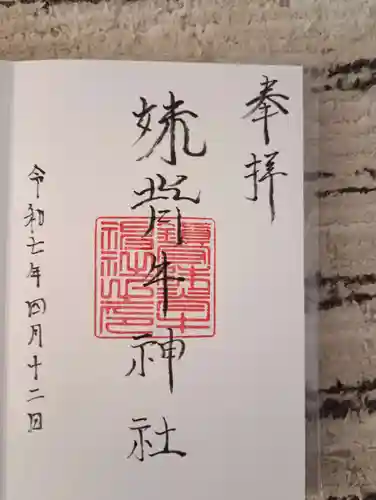 奉拝
妹背牛神社
令和七年四月十二日